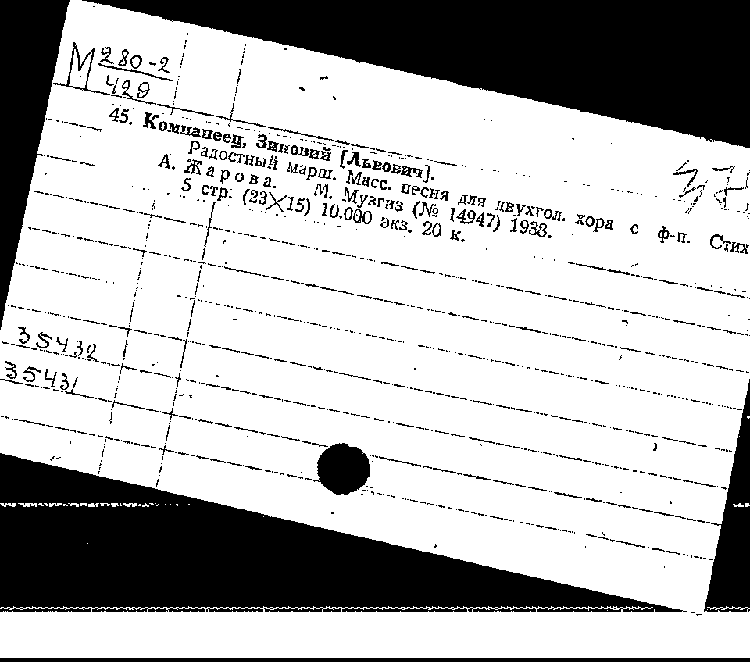 М 280-2
429
45. Компанеец, Зиновий [Львович].
Радостный марш. Масс. песня для двухгол. хора с ф-п. Стих
А. Жарова. М. Музгиз (№ 14947) 1938.
5 стр. (23×15) 10.000 экз. 20 к.
35432
35431